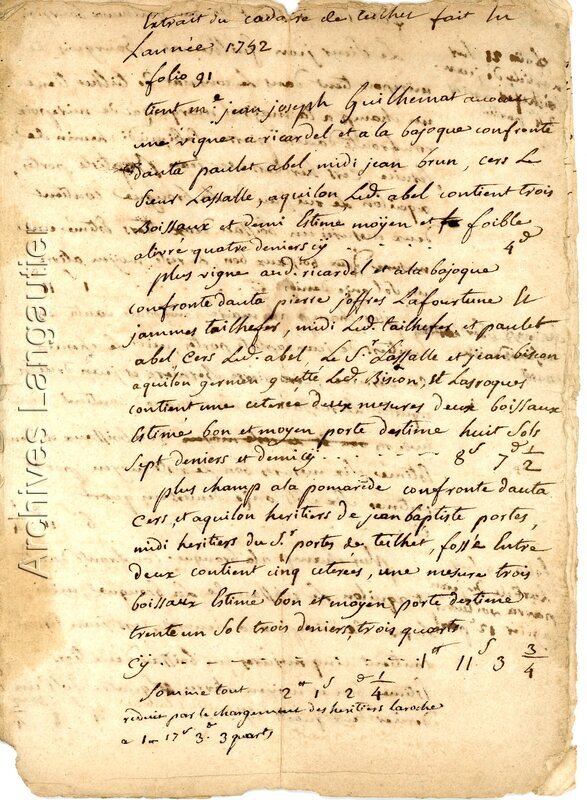 Extrait du cadaire de teilhet fait en
Lannée 1752
folio 91
tient me jean joseph Guilhemat
une vigne a ricardel et a la bajoque confronte
dauta paulet abel, midi jean brun, cers Le
sieur Lassalle, aquilon, Led. abel contient trois
Boissaux et demi Estimé moyen et foible
alivré quatre deniers cy . . . . . . 4 d
plus vigne aud. ricardel et a la bajoque
confronte dauta pierre joffres Lafourtune Et
jammes tailhefer, midi Led. tailhefer et paulet
abel Cers Led. abel, Le Sr Lassalle et jean biscon
aquilon germen Led. Biscon, et Lasroques
contient une ceteree deux mesures deux boissaux
Estimé bon et moyen porte destime huit sols
sept deniers et demi cy . . . . . 8 s 7 d 1/2
plus champ a la pomarede confronte dauta
Cers, et aquilon heritiers de jean baptiste portes,
midi heritiers du Sr portes de teilhet, fossé Entre
deux contient cinq ceterées, une mesure trois
boissaux Estimé bon et moyen porte destime
trente un sol trois deniers, trois quarts
cy . . . . . . 1 tt 11 s 3 3/4
Somme tout 2 tt 1 s 2 d 1/4
reduit par le chargement des heritiers Laroche
a 1 tt 17 s 3 d 3 quarts
Archives Langautier